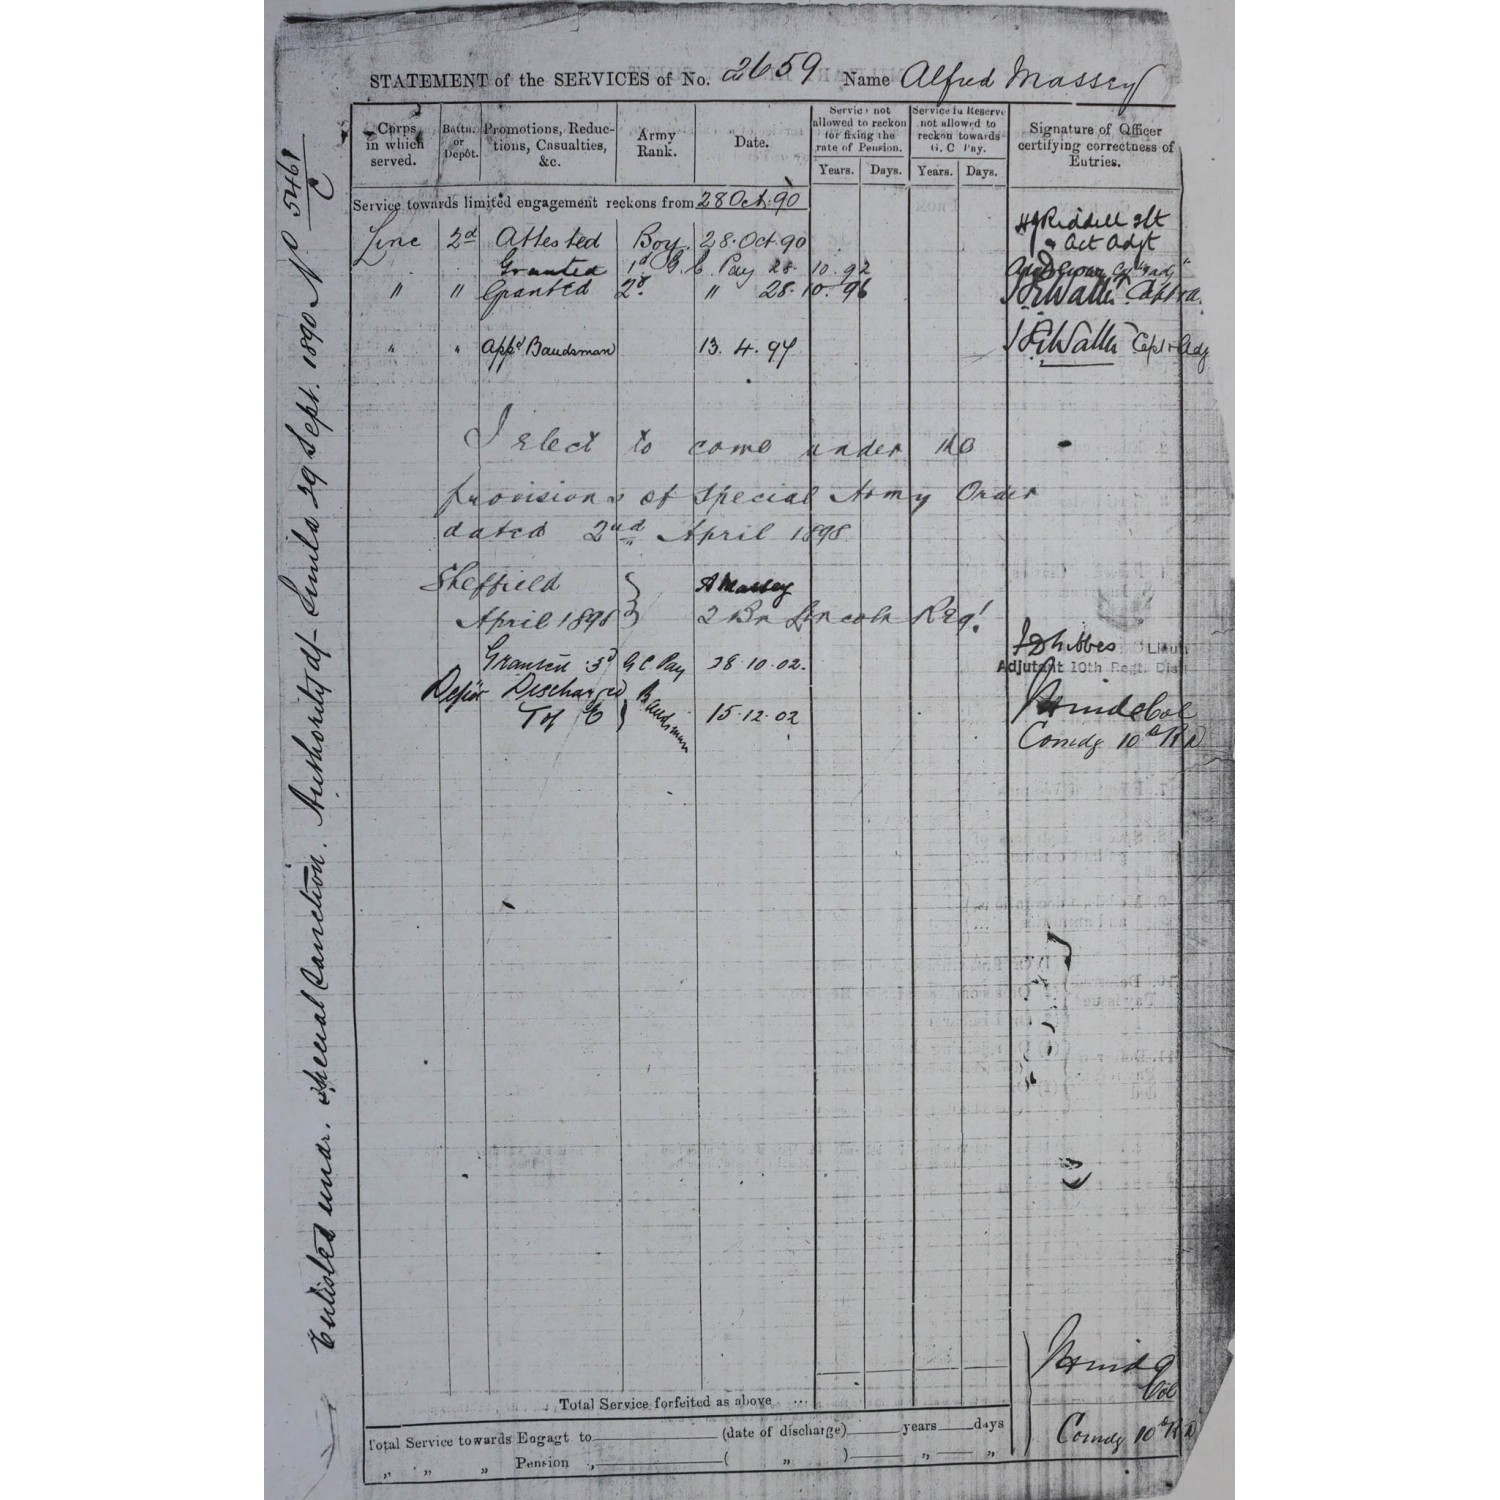 STATEMENT of the SERVICES of No. 2659 Name Alfred Massey
Corps in which served.
Battn. or Depôt.
Promotions, Reductions, Casualties, &c.
Army Rank.
Date.
Service not allowed to reckon for fixing the rate of Pension.
Service in Reserve not allowed to reckon towards G. C. Pay.
Signature of Officer certifying correctness of Entries.
Years. Days. Years. Days.
Service towards limited engagement reckons from 28 Oct. 90
Line 2d Attested Boy 28. Oct. 90 Riddell Lt
Act Adjt
Granted 1st G. C. Pay 28. 10. 92
" " Granted 2d. " 28. 10. 96 Wallis Capt
" " Appd Bandsman 13. 4. 97 Wallis Capt & Adj
I Elect to come under the
provisions of Special Army Order
dated 2nd April 1898
Sheffield } A Massey
April 1898 } 2 Bn Lincoln Reg!
Granted 3d G C. Pay 28. 10. 02.
Adjutant 10th Regt. Dist
Depôt Discharged } Bandsman 15. 12. 02 Col
Comdg 10th R D
Enlisted under Special Sanction. Authority Simla 29 Sept. 1890 No 5468/C
Total Service forfeited as above ...
Col
Total Service towards Engagt to (date of discharge) years days
Comdg 10th R D
" " " Pension , ( " ) " "